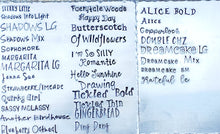 Shadows Infolight
SHADOWS LG
Shadows Mix
SOPHOMORE
MARGARITA
MARGARITA LG
Jenna Sue
Strawberry/limeade
Quirky Girl
SASSY MOLASSY
Another Birdhouse
Fairytale Woods
Happy Day
Butterscotch
Of Wildflowers
I'm So SILLY
Romantic
Hello Sunshine
Drawing
Tickled Bold
Tickled Thin
GINGERBREAD
Ding Dong
ALICE BOLD
Alice
DOUBLE CHZ
DREAMCAKE LG
DREAMCAKE Mix
DREAMCAKE SM
Grateful